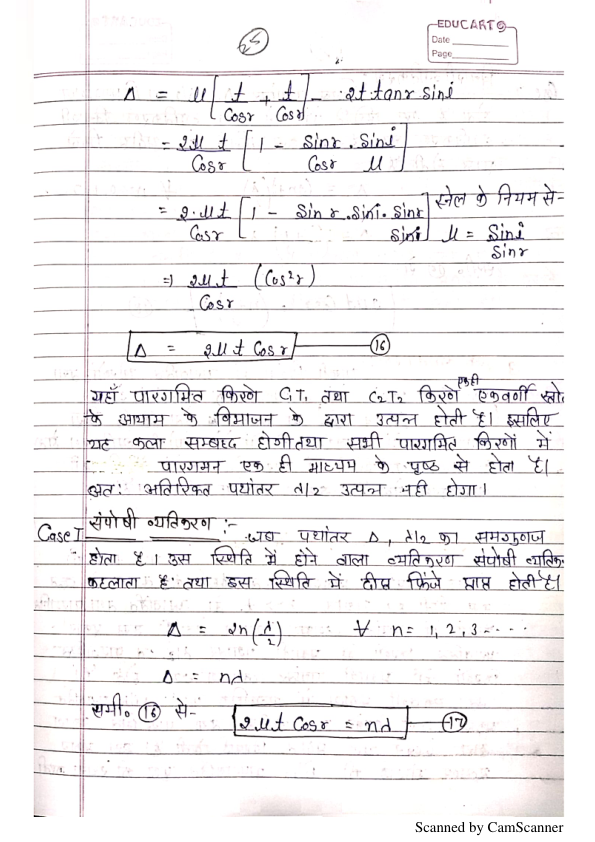 25
EDUCART
Date
Page
Δ = μ[t/Cosr + t/Cosr] - 2t tanr sini
= 2μt/Cosr [1 - Sinr/Cosr . Sini/μ]
= 2.μt/Cosr [1 - Sinr.Sini.Sinr/Sini] स्नेल के नियम से- μ = Sini/Sinr
⇒ 2μt/Cosr (Cos²r)
Δ = 2μt Cosr — (16)
यहाँ पारगमित किरणे C₁T₁ तथा C₂T₂ किरणे एकही एकवर्णी स्त्रो
के आयाम के विभाजन के द्वारा उत्पन्न होती है। इसलिए
यह कला सम्बध्द होगी तथा सभी पारगमित किरणों में
पारगमन एक ही माध्यम के पृष्ठ से होता है।
अतः अतिरिक्त पथांतर λ/2 उत्पन्न नही होगा।
Case I संपोषी व्यतिकरण :- जब पथांतर Δ, λ/2 का समगुणज
होता है। उस स्थिति में होने वाला व्यतिकरण संपोषी व्यतिक
कहलाता है तथा इस स्थिति में दीप्त फ्रिंजे प्राप्त होती है।
Δ = 2n(λ/2) ∀ n = 1, 2, 3 - - - -
Δ = nλ
समी० (16) से- 2μt Cosr = nλ — (17)
Scanned by CamScanner